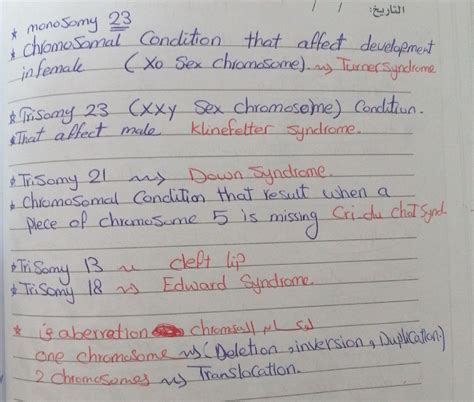 التاريخ: / /
* monosomy 23
* chromosomal Condition that affect development
in female (Xo Sex chromosome). ~> Turner syndrome
* Trisomy 23 (XXy Sex chromosome) Condition.
* That affect male Klinefelter syndrome.
* Trisomy 21 ~> Down Syndrome.
* Chromosomal Condition that result when a
Piece of chromosome 5 is missing Cri-du chat Synd.
* Trisomy 13 ~ cleft lip
* Trisomy 18 ~> Edward Syndrome.
* aberration
one chromosome ~> (Deletion, inversion, Duplication.)
2 chromosomes ~> Translocation.